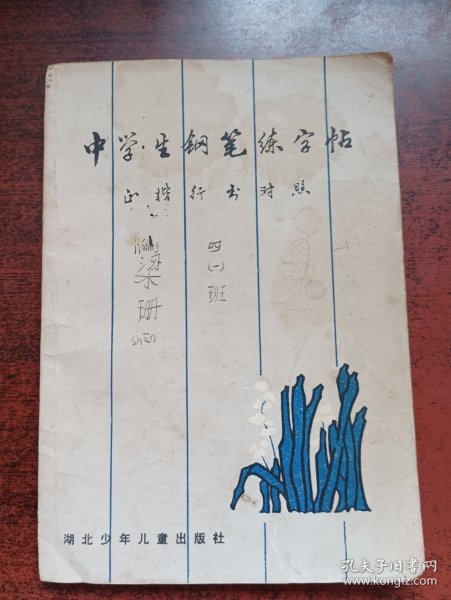 中学生钢笔练字帖
正楷行书对照
liáng
梁
珊
shān
四
(一)
班
湖北少年儿童出版社
孔夫子旧书网
www.kongfz.com